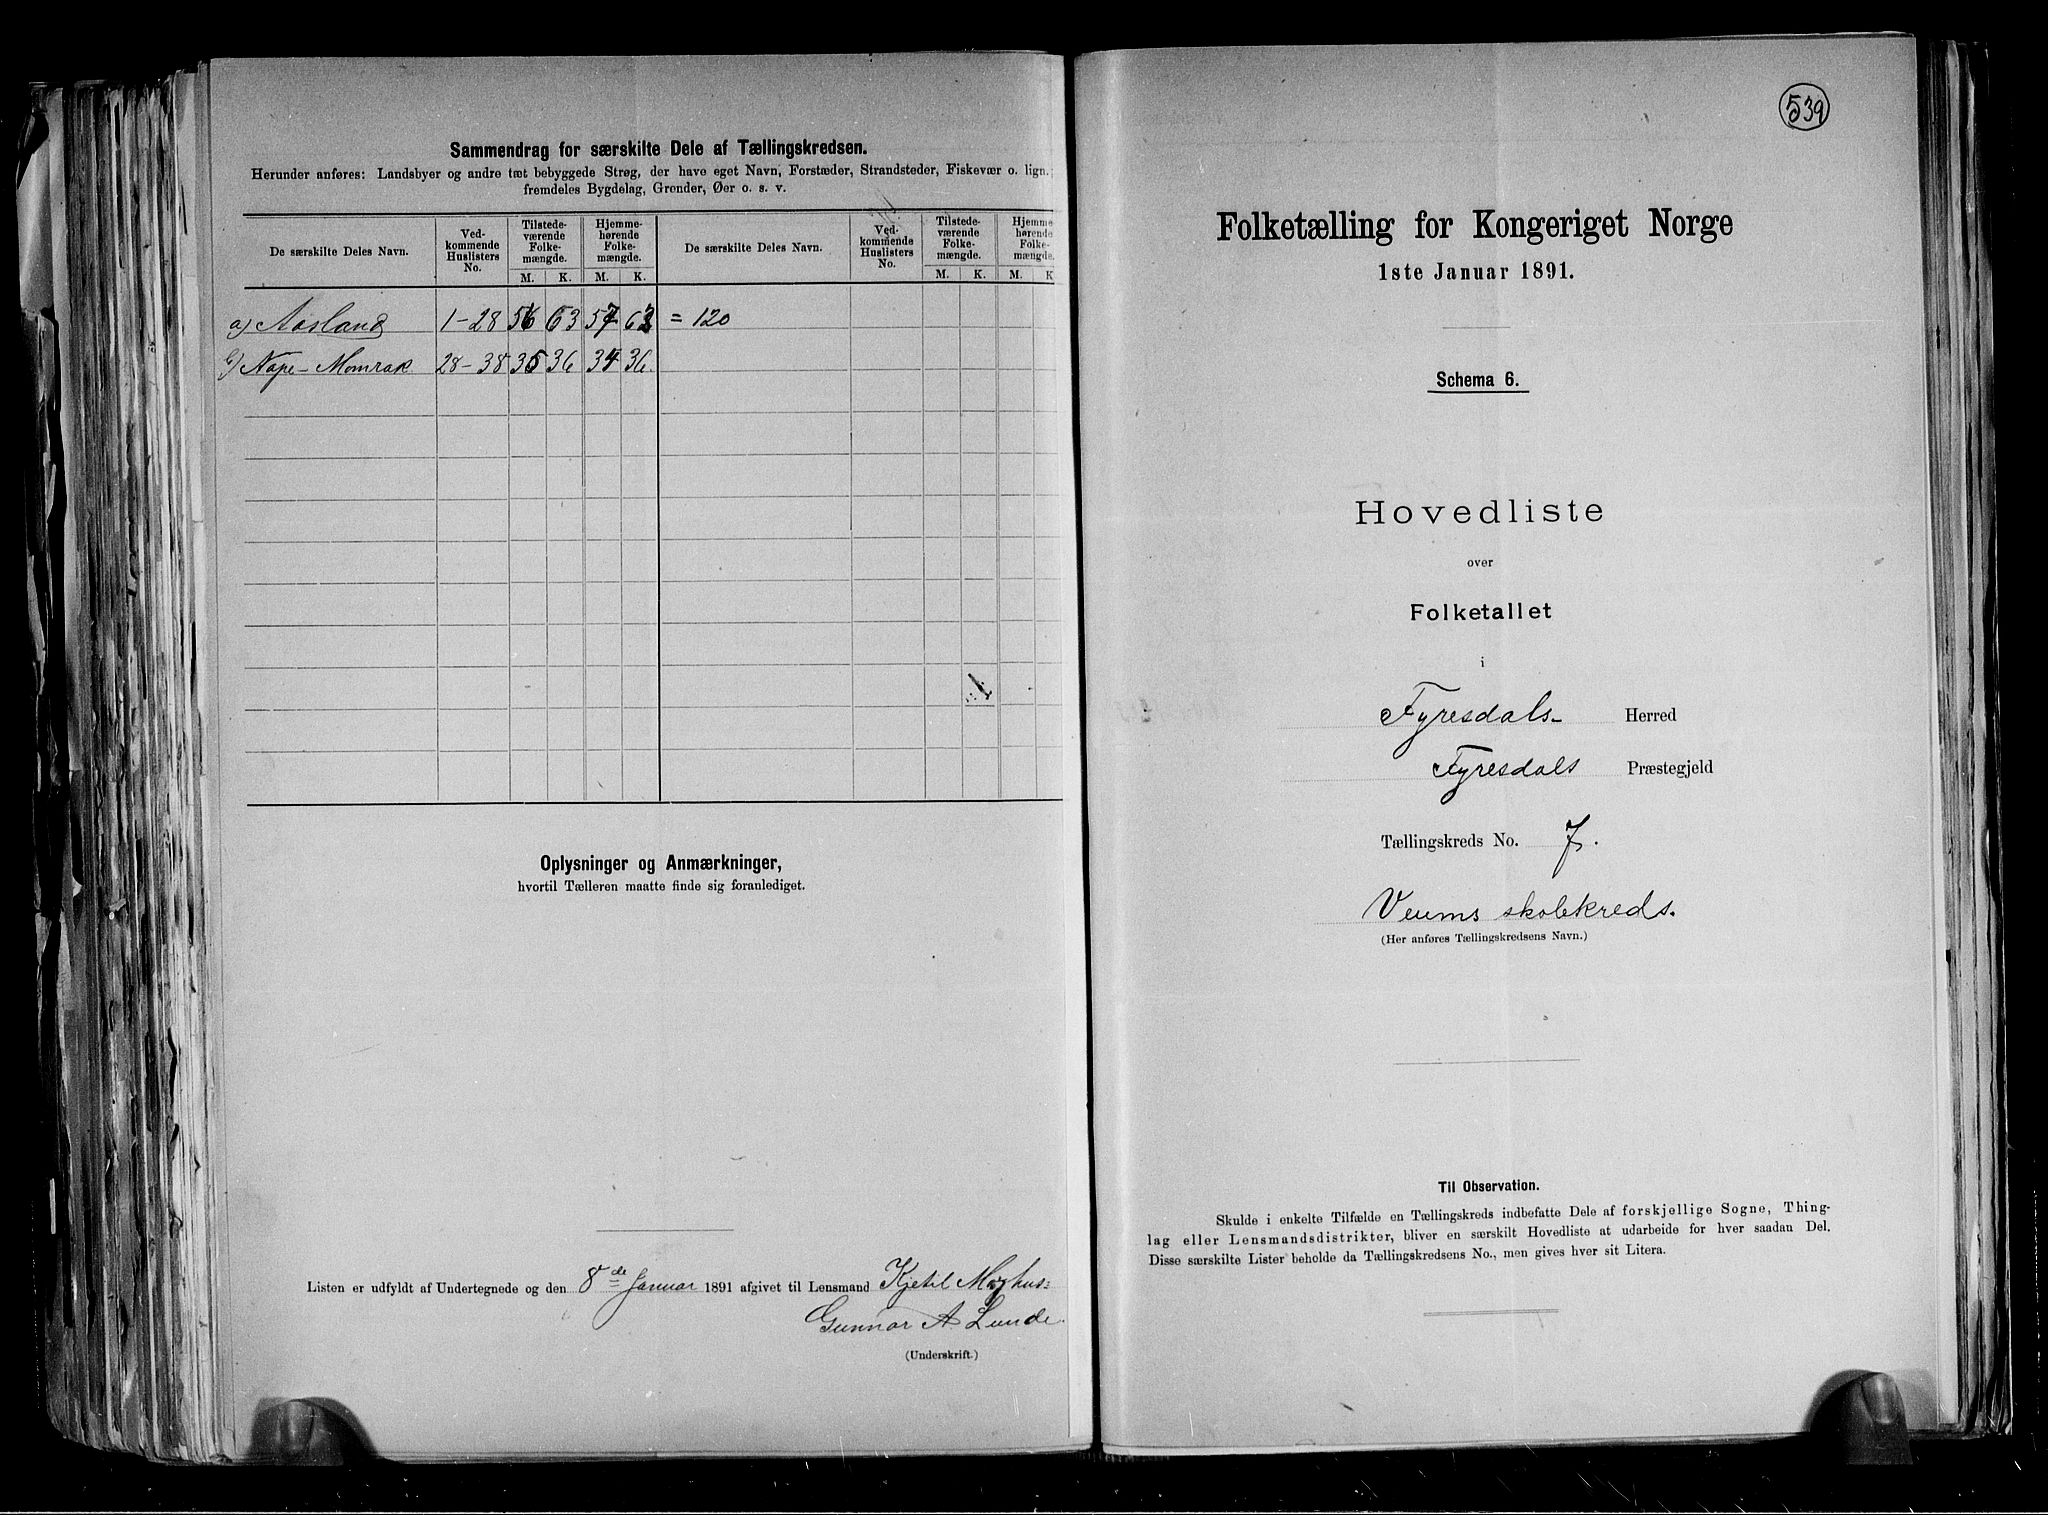 Sammendrag for særskilte Dele af Tællingskredsen.
Herunder anføres: Landsbyer og andre tæt bebyggede Strøg, der have eget Navn, Forstæder, Strandsteder, Fiskevær o. lign.;
fremdeles Bygdelag, Grender, Øer o. s. v.
De særskilte Deles Navn. Ved-kommende Huslisters No. Tilstede-værende Folke-mængde. Hjemme-hørende Folke-mængde. De særskilte Deles Navn. Ved-kommende Huslisters No. Tilstede-værende Folke-mængde. Hjemme-hørende Folke-mængde.
M. K. M. K. M. K. M. K
a) Aasland 1-28 56 63 57 63 = 120
b) Nape-Momrak 28-38 35 36 34 36.
Oplysninger og Anmærkninger,
hvortil Tælleren maatte finde sig foranlediget.
Listen er udfyldt af Undertegnede og den 8de Januar 1891 afgivet til Lensmand Kjetil Moghus
Gunnar A Lunde.
(Underskrift.)
539
Folketælling for Kongeriget Norge
1ste Januar 1891.
Schema 6.
Hovedliste
over
Folketallet
i
Fyresdals- Herred
Fyresdals Præstegjeld
Tællingskreds No. 7.
Veums skolekreds.
(Her anføres Tællingskredsens Navn.)
Til Observation.
Skulde i enkelte Tilfælde en Tællingskreds indbefatte Dele af forskjellige Sogne, Thing-
lag eller Lensmandsdistrikter, bliver en særskilt Hovedliste at udarbeide for hver saadan Del.
Disse særskilte Lister beholde da Tællingskredsens No., men gives hver sit Litera.